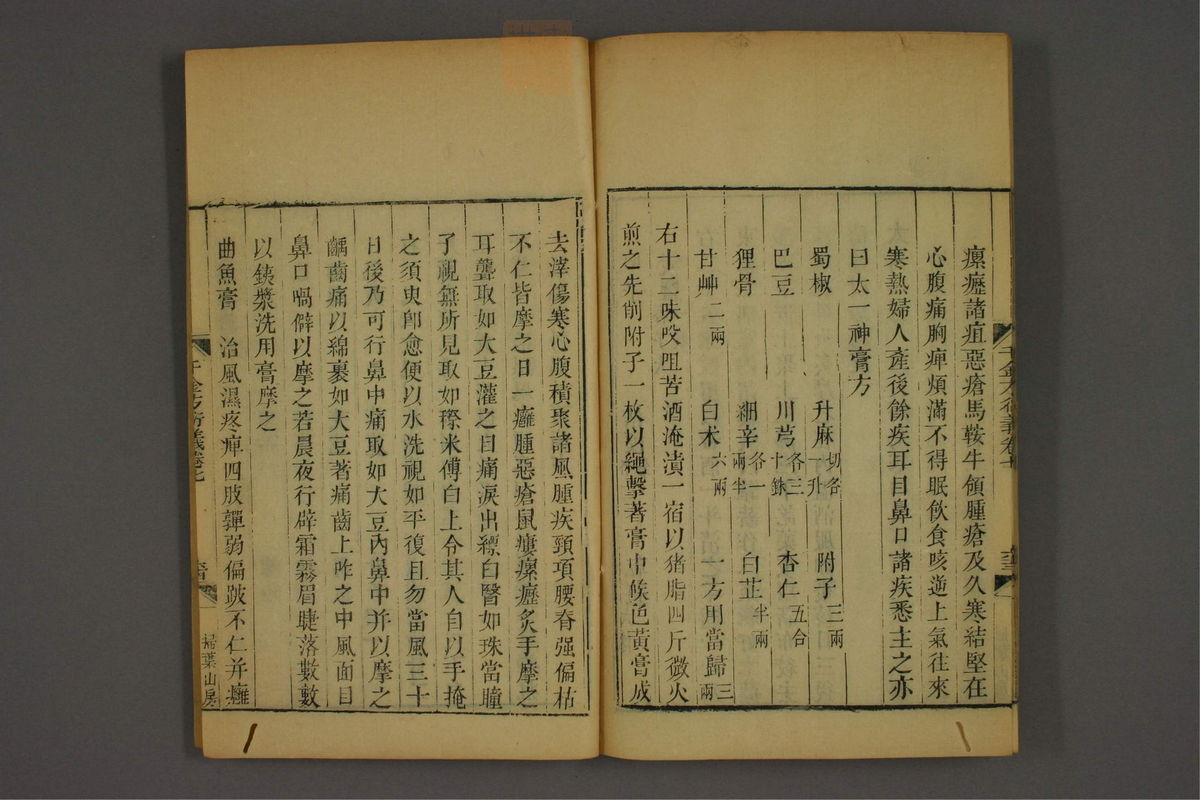 瘰癧諸疽惡瘡馬鞍牛領腫瘡及久寒結堅在
心腹痛胸痺煩滿不得眠飲食咳逆上氣往來
寒熱婦人產後餘疾耳目鼻口諸疾悉主之亦
曰太一神膏方
蜀椒 升麻切各一升 附子三兩
巴豆 川芎各三十銖 杏仁五合
狸骨 細辛各一兩半 白芷半兩
甘艸二兩 白朮六兩 一方用當歸三兩
右十二味㕮咀苦酒淹漬一宿以猪脂四斤微火
煎之先削附子一枚以繩繫著膏中候色黃膏成
去滓傷寒心腹積聚諸風腫疾頸項腰脊强偏枯
不仁皆摩之日一癰腫惡瘡鼠瘻瘰癧炙手摩之
耳聾取如大豆灌之目痛淚出縹白翳如珠當瞳
子視無所見取如穄米傅白上令其人自以手掩
之須臾卽愈便以水洗視如平復且勿當風三十
日後乃可行鼻中痛取如大豆內鼻中并以摩之
齲齒痛以綿裹如大豆著痛齒上咋之中風面目
鼻口喎僻以摩之若晨夜行辟霜霧眉睫落數數
以鐵漿洗用膏摩之
曲魚膏 治風濕疼痺四肢嚲弱偏跛不仁并癰
千金方衍義卷七
掃葉山房